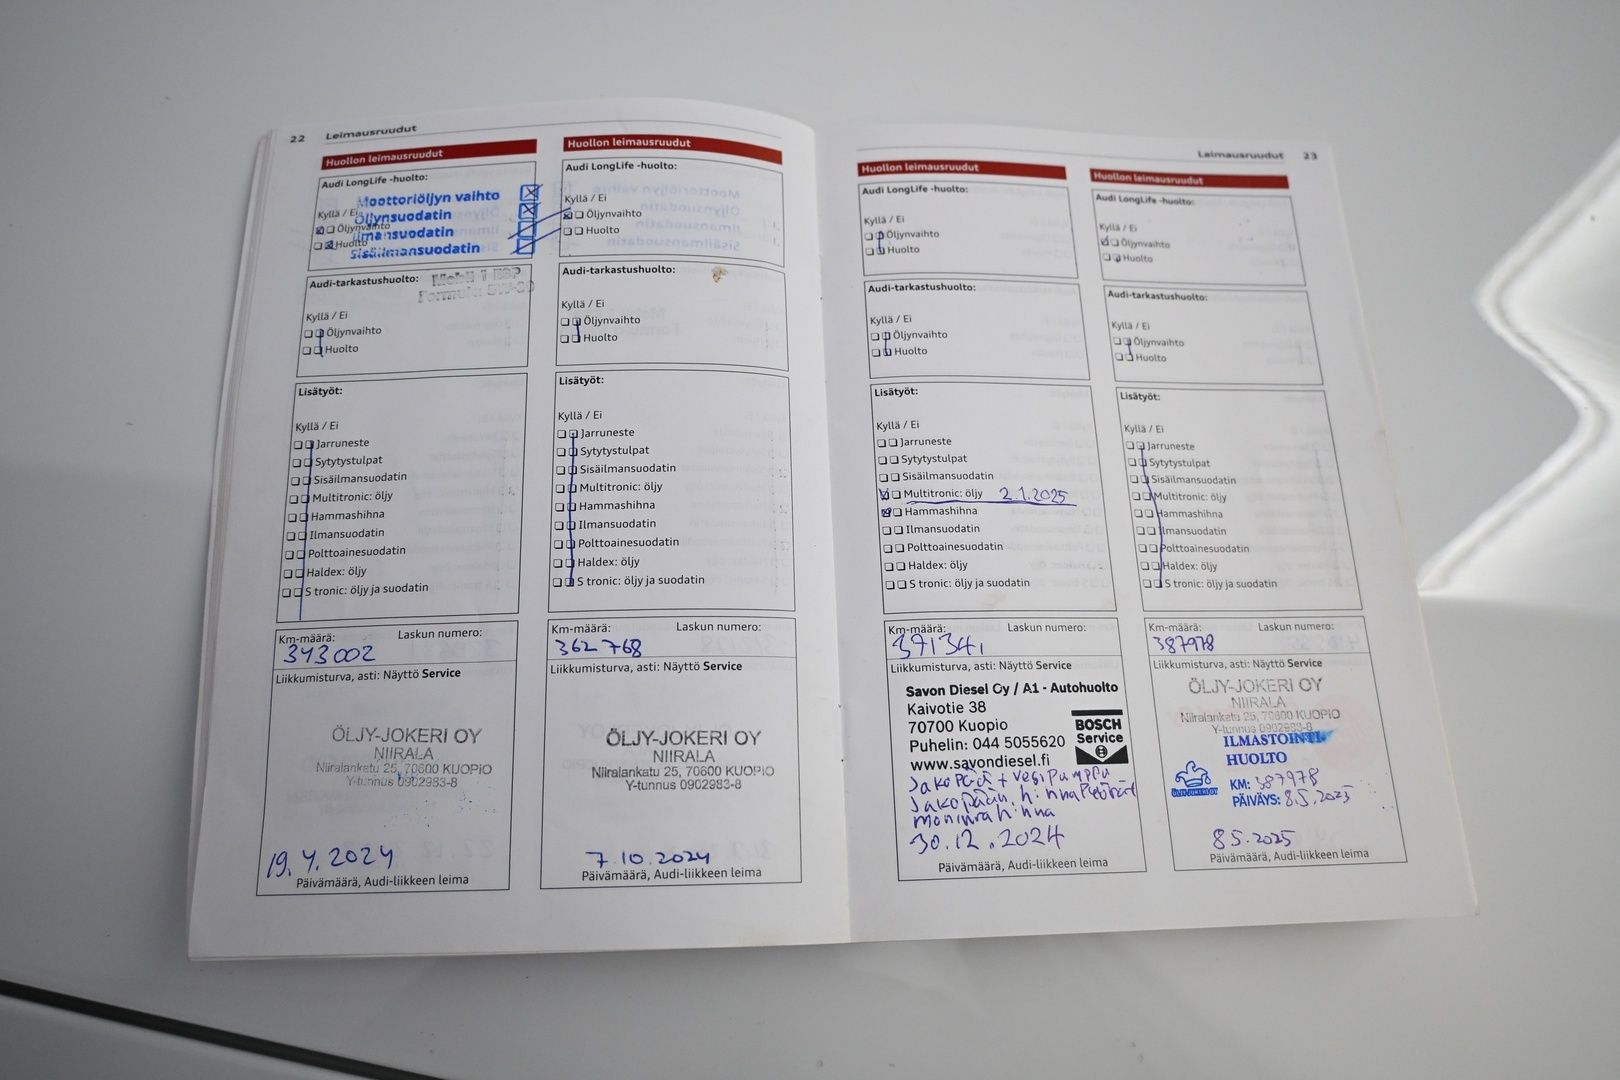 22 Leimausruudut
Huollon leimausruudut
Audi LongLife -huolto:
Moottoriöljyn vaihto
Kyllä / Ei
Öljynsuodatin
Öljynvaihto
Ilmansuodatin
Huolto
Sisäilmansuodatin
Audi-tarkastushuolto:
Mobil 1 ESP
Formula 5W-30
Kyllä / Ei
Öljynvaihto
Huolto
Lisätyöt:
Kyllä / Ei
Jarruneste
Sytytystulpat
Sisäilmansuodatin
Multitronic: öljy
Hammashihna
Ilmansuodatin
Polttoainesuodatin
Haldex: öljy
S tronic: öljy ja suodatin
Km-määrä: Laskun numero:
343002
Liikkumisturva, asti: Näyttö Service
ÖLJY-JOKERI OY
NIIRALA
Niiralankatu 25, 70600 KUOPIO
Y-tunnus 0902983-8
19.4.2024
Päivämäärä, Audi-liikkeen leima
Huollon leimausruudut
Audi LongLife -huolto:
Kyllä / Ei
Öljynvaihto
Huolto
Audi-tarkastushuolto:
Kyllä / Ei
Öljynvaihto
Huolto
Lisätyöt:
Kyllä / Ei
Jarruneste
Sytytystulpat
Sisäilmansuodatin
Multitronic: öljy
Hammashihna
Ilmansuodatin
Polttoainesuodatin
Haldex: öljy
S tronic: öljy ja suodatin
Km-määrä: Laskun numero:
362768
Liikkumisturva, asti: Näyttö Service
ÖLJY-JOKERI OY
NIIRALA
Niiralankatu 25, 70600 KUOPIO
Y-tunnus 0902983-8
7.10.2024
Päivämäärä, Audi-liikkeen leima
Leimausruudut 23
Huollon leimausruudut
Audi LongLife -huolto:
Kyllä / Ei
Öljynvaihto
Huolto
Audi-tarkastushuolto:
Kyllä / Ei
Öljynvaihto
Huolto
Lisätyöt:
Kyllä / Ei
Jarruneste
Sytytystulpat
Sisäilmansuodatin
Multitronic: öljy 2.1.2025
Hammashihna
Ilmansuodatin
Polttoainesuodatin
Haldex: öljy
S tronic: öljy ja suodatin
Km-määrä: Laskun numero:
371341
Liikkumisturva, asti: Näyttö Service
Savon Diesel Oy / A1 - Autohuolto
Kaivotie 38
70700 Kuopio
Puhelin: 044 5055620
www.savondiesel.fi
BOSCH
Service
Jakopää + vesipumppu
Jakopään hihna
moniura hihna
30.12.2024
Päivämäärä, Audi-liikkeen leima
Huollon leimausruudut
Audi LongLife -huolto:
Kyllä / Ei
Öljynvaihto
Huolto
Audi-tarkastushuolto:
Kyllä / Ei
Öljynvaihto
Huolto
Lisätyöt:
Kyllä / Ei
Jarruneste
Sytytystulpat
Sisäilmansuodatin
Multitronic: öljy
Hammashihna
Ilmansuodatin
Polttoainesuodatin
Haldex: öljy
S tronic: öljy ja suodatin
Km-määrä: Laskun numero:
387978
Liikkumisturva, asti: Näyttö Service
ÖLJY-JOKERI OY
NIIRALA
Niiralankatu 25, 70600 KUOPIO
Y-tunnus 0902983-8
ILMASTOINTI
HUOLTO
ÖLJY-JOKERI OY
KM: 387978
PÄIVÄYS: 8.5.2025
8.5.2025
Päivämäärä, Audi-liikkeen leima